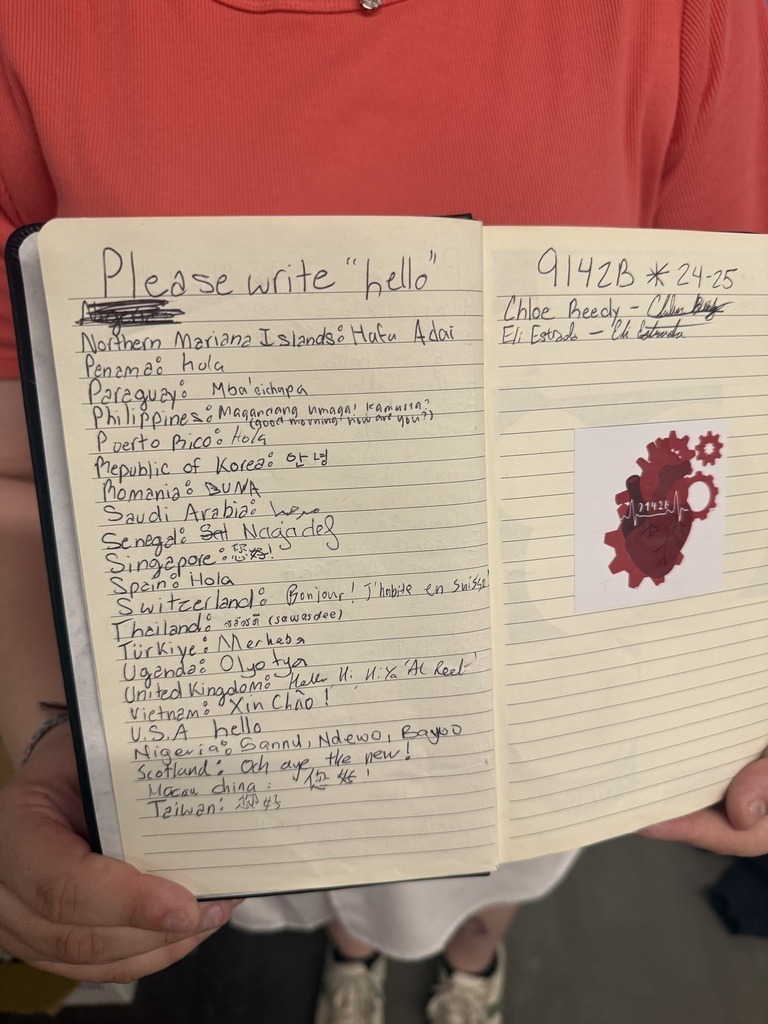 Please write "hello"
Northern Mariana Islands: Hafa Adai
Panama: Hola
Paraguay: Mba'eichapa
Philippines: Magandang Umaga! Kamusta?
(good morning, how are you?)
Puerto Rico: Hola
Republic of Korea: 안녕
Romania: BUNA
Saudi Arabia: مرحبا
Senegal: Nagadef
Singapore: 您好!
Spain: Hola
Switzerland: Bonjour! J'habite en Suisse!
Thailand: สวัสดี (sawasdee)
Türkiye: Merhaba
Uganda: Olyotya
United Kingdom: Hello Hi HiYa 'Al Reet'
Vietnam: Xin Chào!
U.S.A hello
Nigeria: Sannu, Ndewo, Bawo
Scotland: Och aye the new!
Macau china: 您好!
Taiwan: 您好
9142B * 24-25
Chloe Reedy - Chloe Reedy
Eli Estrada - Eli Estrada